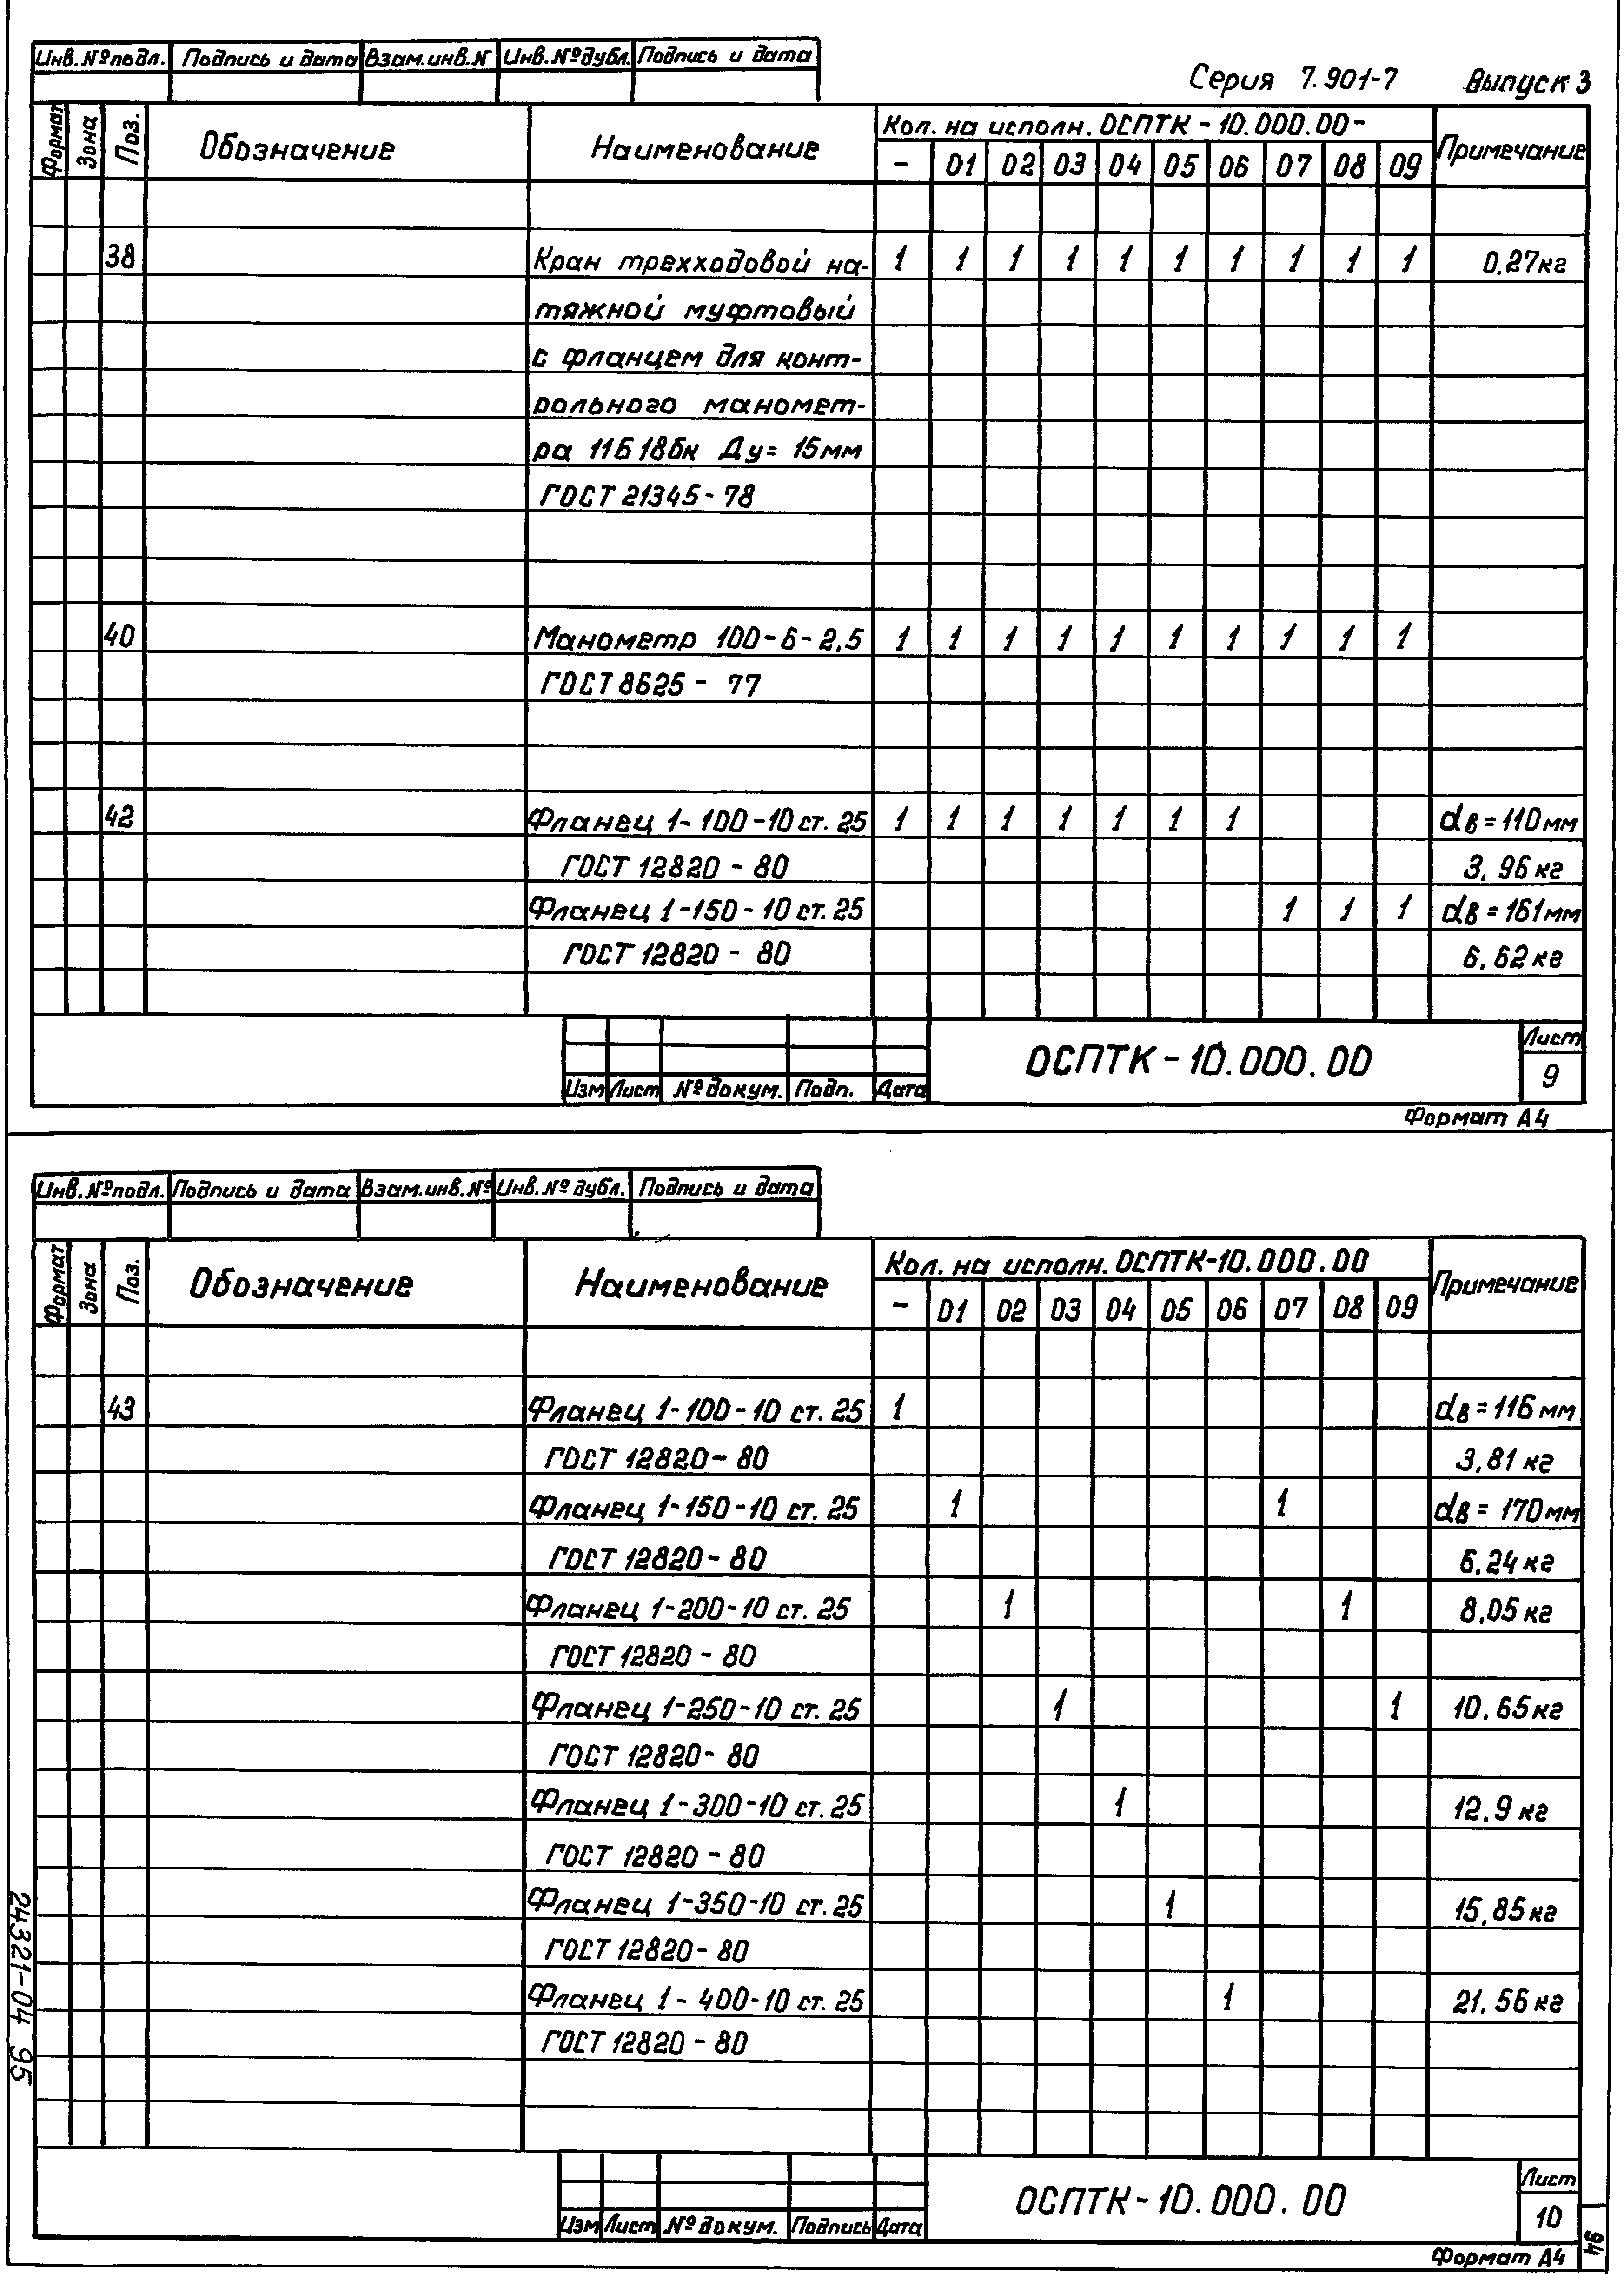 Инв.№подл. Подпись и дата Взам.инв.N Инв.№дубл. Подпись и дата
Серия 7.901-7 Выпуск 3
Формат Зона Поз. Обозначение Наименование Кол. на исполн. ОСПТК-10.000.00- Примечание
- 01 02 03 04 05 06 07 08 09
38 Кран трехходовой на- 1 1 1 1 1 1 1 1 1 1 0.27кг
тяжной муфтовый
с фланцем для конт-
рольного маномет-
ра 11Б18бк Ду= 15мм
ГОСТ 21345-78
40 Манометр 100-6-2,5 1 1 1 1 1 1 1 1 1 1
ГОСТ 8625 - 77
42 Фланец 1-100-10 ст. 25 1 1 1 1 1 1 1 dв=110мм
ГОСТ 12820-80 3,96кг
Фланец 1-150-10 ст. 25 1 1 1 dв=161мм
ГОСТ 12820-80 6.62кг
ОСПТК-10.000.00 Лист
Изм Лист №докум. Подп. Дата 9
Формат А4
Инв.№подл. Подпись и дата Взам.инв.№ Инв.№дубл. Подпись и дата
Формат Зона Поз. Обозначение Наименование Кол. на исполн. ОСПТК-10.000.00 Примечание
- 01 02 03 04 05 06 07 08 09
43 Фланец 1-100-10 ст. 25 1 dв=116 мм
ГОСТ 12820-80 3,81 кг
Фланец 1-150-10 ст. 25 1 1 dв= 170мм
ГОСТ 12820-80 6.24 кг
Фланец 1-200-10 ст. 25 1 1 8,05 кг
ГОСТ 12820-80
Фланец 1-250-10 ст. 25 1 1 10,65кг
ГОСТ 12820-80
Фланец 1-300-10 ст. 25 1 12,9 кг
ГОСТ 12820-80
Фланец 1-350-10 ст. 25 1 15,85кг
ГОСТ 12820-80
Фланец 1-400-10 ст. 25 1 21.56 кг
ГОСТ 12820-80
24321-04 95
ОСПТК-10.000.00 Лист
Изм Лист №докум. Подпись Дата 10
Формат А4
94